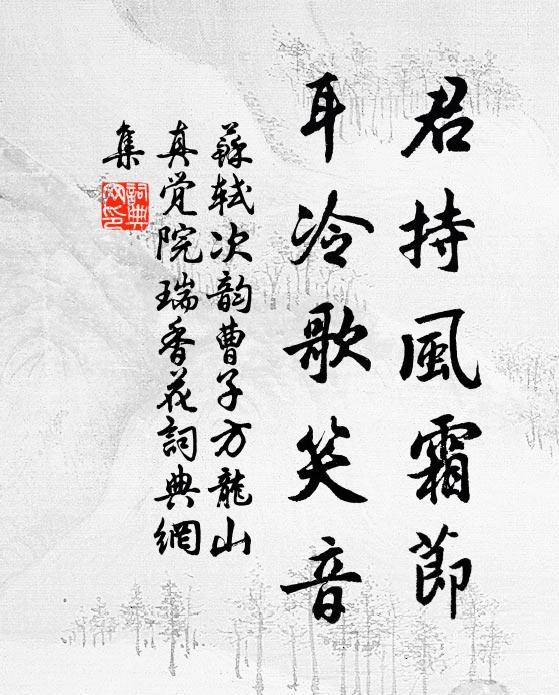 君持風霜節
耳冷歌笑音
蘇軾次韵曹子方龍山
真覺院瑞香花詞典網
集
詞典網印